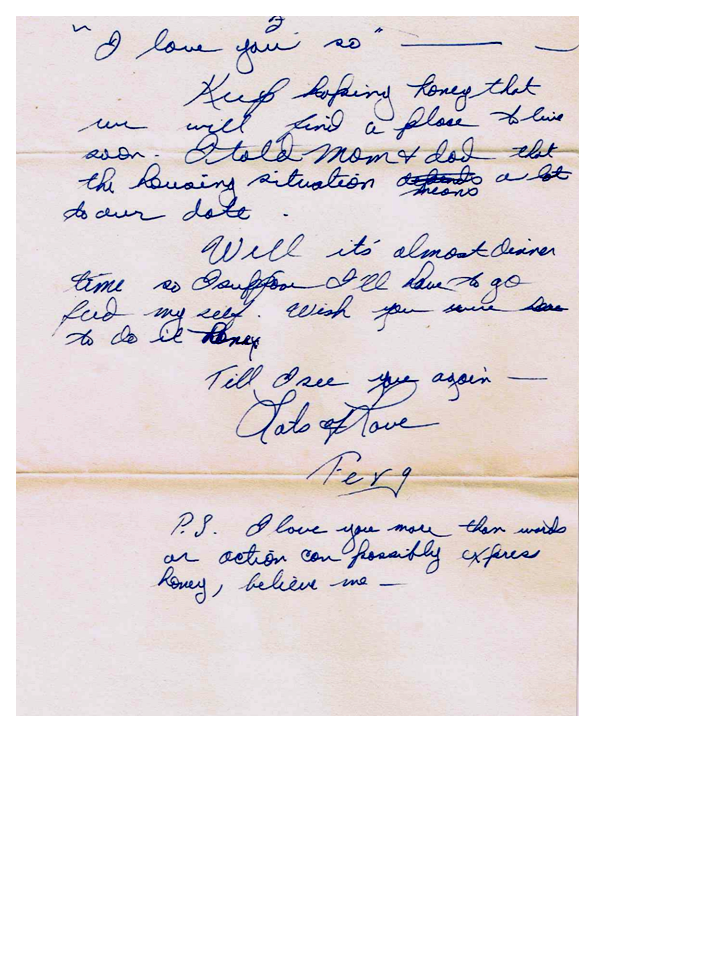 "I love you so"
Keep hoping honey that
we will find a place to live
soon. I told Mom & dad that
the housing situation depends means a lot
to our date.
Well it's almost dinner
time so I suppose I'll have to go
feed my self. Wish you were here
to do it honey
Till I see you again —
Lots of Love
Ferg
P.S. I love you more than words
or action can possibly express
honey, believe me —